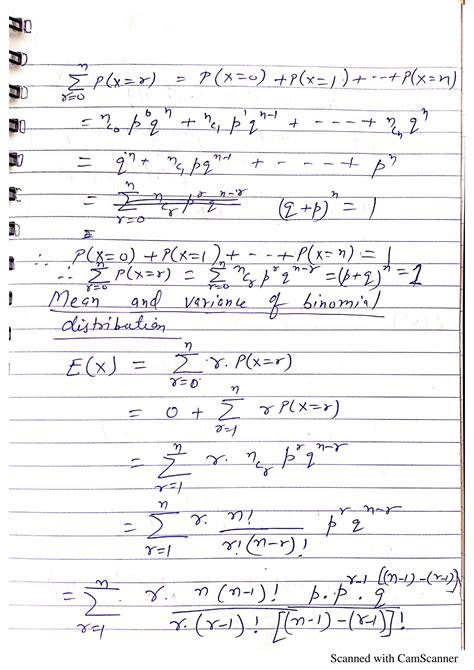 n
∑ P(X=r) = P(X=0) + P(X=1) + --- + P(X=n)
r=0
= ⁿC₀ p⁰qⁿ + ⁿC₁ p¹qⁿ⁻¹ + - - - - + ⁿCₙ qⁿ
= qⁿ + ⁿC₁ pqⁿ⁻¹ + - - - - + pⁿ
= ∑ ⁿCᵣ pʳ qⁿ⁻ʳ (q+p)ⁿ = 1
r=0
∴ P(X=0) + P(X=1) + - - + P(X=n) = 1
∴ ∑ P(X=r) = ∑ ⁿCᵣ pʳ qⁿ⁻ʳ = (p+q)ⁿ = 1
r=0 r=0
Mean and variance of binomial
distribution
n
E(X) = ∑ r. P(X=r)
r=0
n
= 0 + ∑ r P(X=r)
r=1
n
= ∑ r. ⁿCᵣ pʳ qⁿ⁻ʳ
r=1
n
= ∑ r. n! / r!(n-r)! pʳ qⁿ⁻ʳ
r=1
n
= ∑ r. n(n-1)! p.pʳ⁻¹.q^[(n-1)-(r-1)] / r.(r-1)! [(n-1)-(r-1)]!
r=1
Scanned with CamScanner